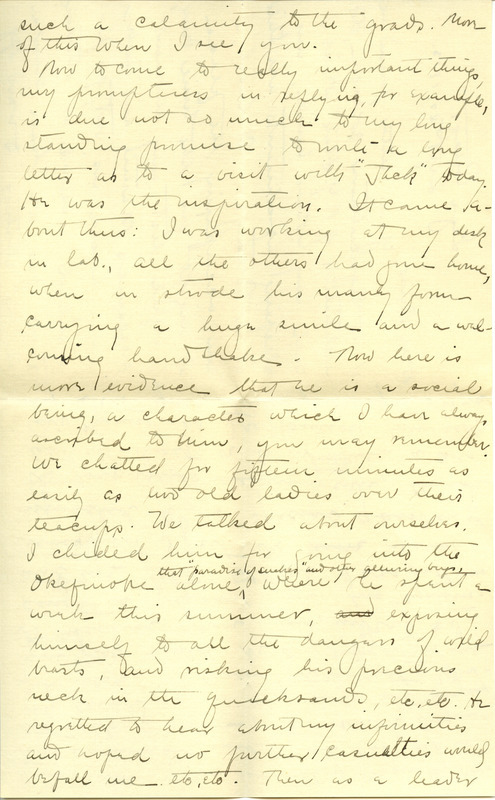 such a calamity to the grads. More
of this when I see you.
Now to come to really important things,
my promptness in replying, for example,
is due not so much to my long
standing promise to write a long
letter as to a visit with "Jack" today.
He was the inspiration. It came a-
bout thus: I was working at my desk
in lab., all the others had gone home,
when in strode his manly form
carrying a huge smile and a wel-
coming handshake. Now here is
more evidence that he is a social
being, a character which I have always
ascribed to him, you may remember.
We chatted for fifteen minutes as
easily as two old ladies over their
teacups. We talked about ourselves.
I chided him for going into the
that "paradise of snakes" and other alluring bugs,
Okefinoke alone, where he spent a
week this summer, and exposing
himself to all the dangers of wild
beasts, and risking his precious
neck in the quicksands, etc, etc. He
regretted to hear about my infirmities
and hoped no further casualties would
befall me etc, etc. Then as a leader